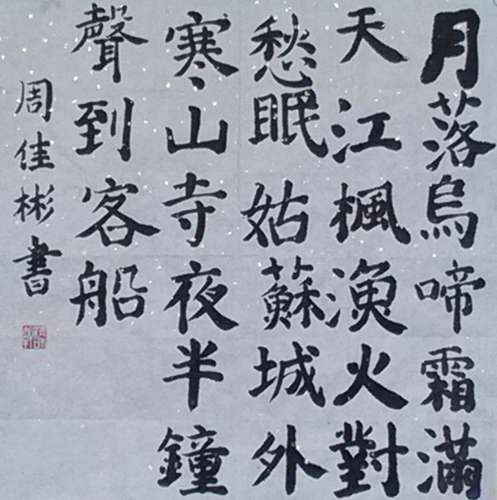 月落烏啼霜滿
天江楓漁火對
愁眠姑蘇城外
寒山寺夜半鐘
聲到客船
周佳彬書